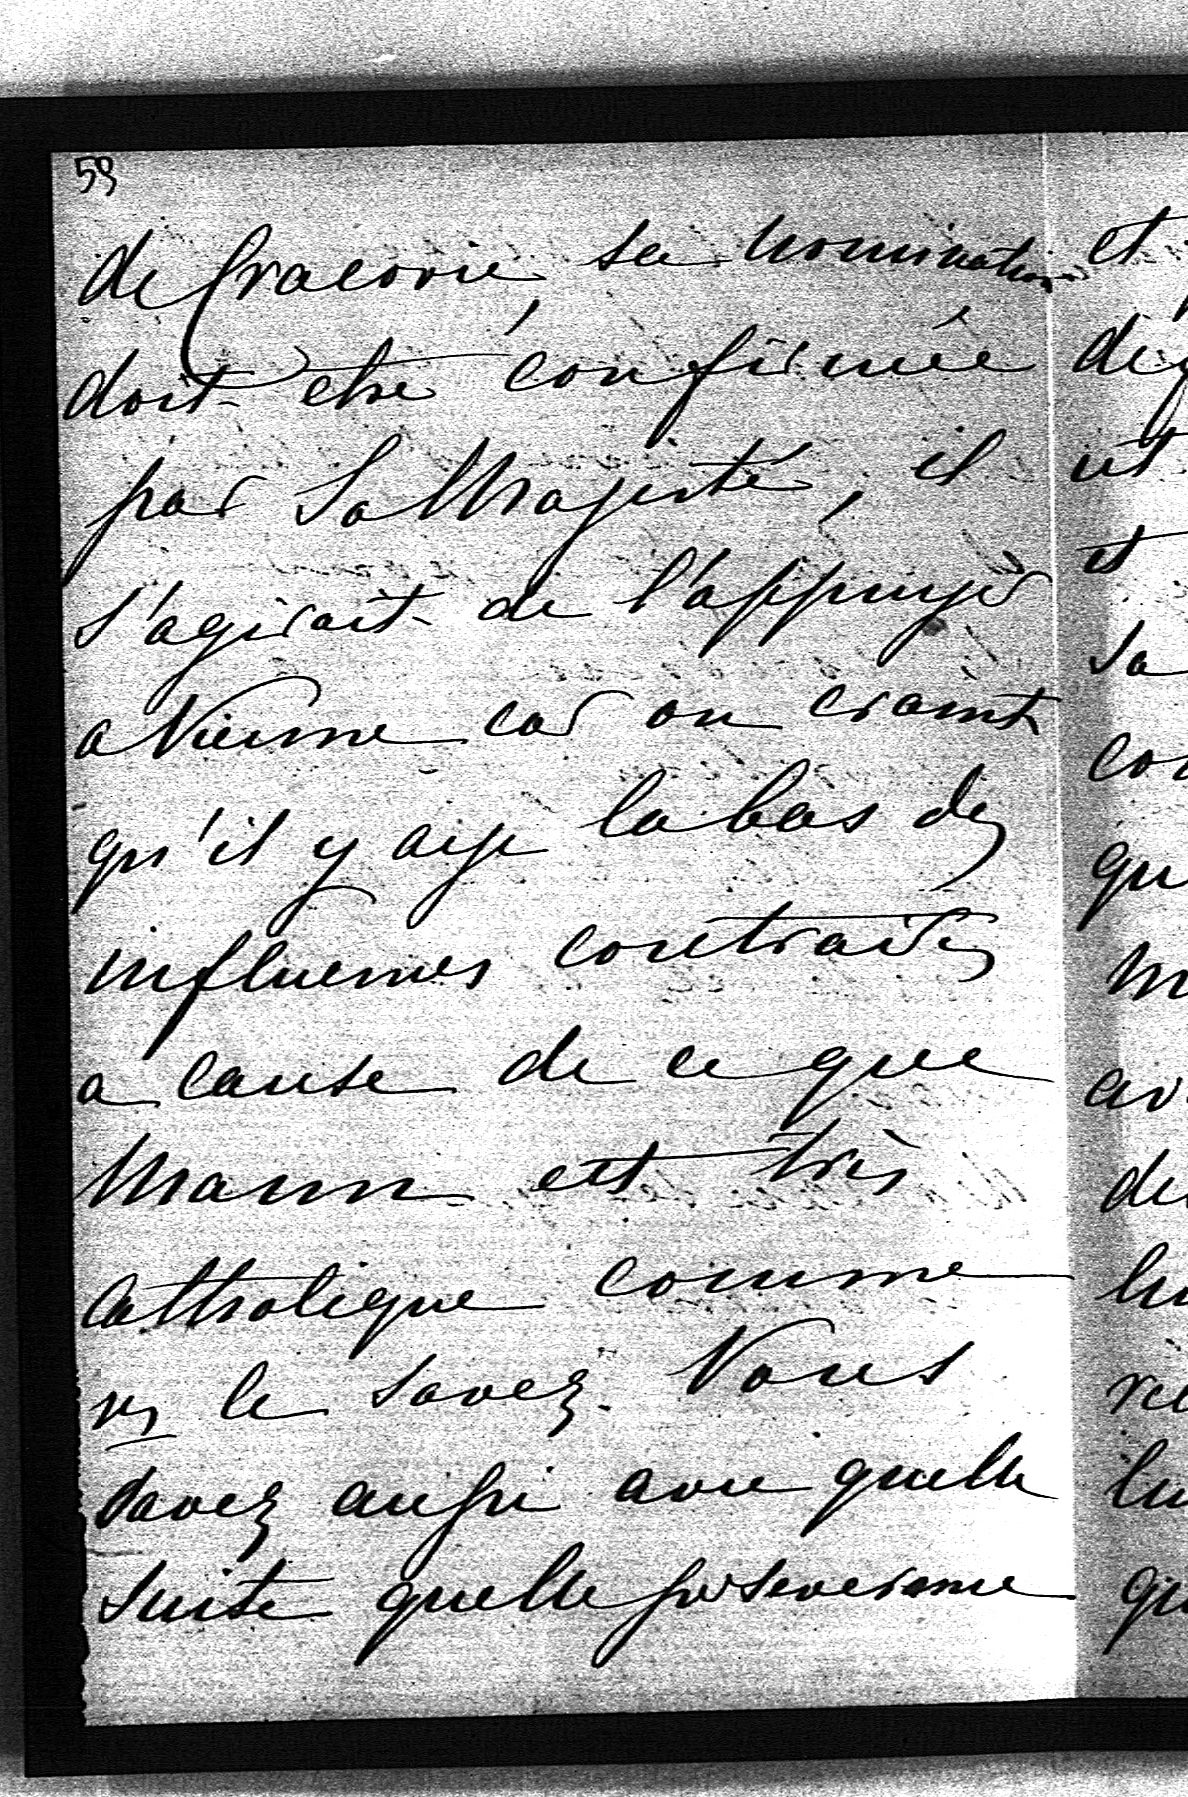 59
de Cracovie, sa nomination
doit etre confirmée
par Sa Majesté, il
s'agirait de l'appuyer
a Vienne car on craint
qu'il y aije la bas des
influences contraires
a cause de ce que
Mann est très
Catholique comme
vs le savez. Vous
savez aussi avec quelle
suite quelle perseverance
et
et
Sa